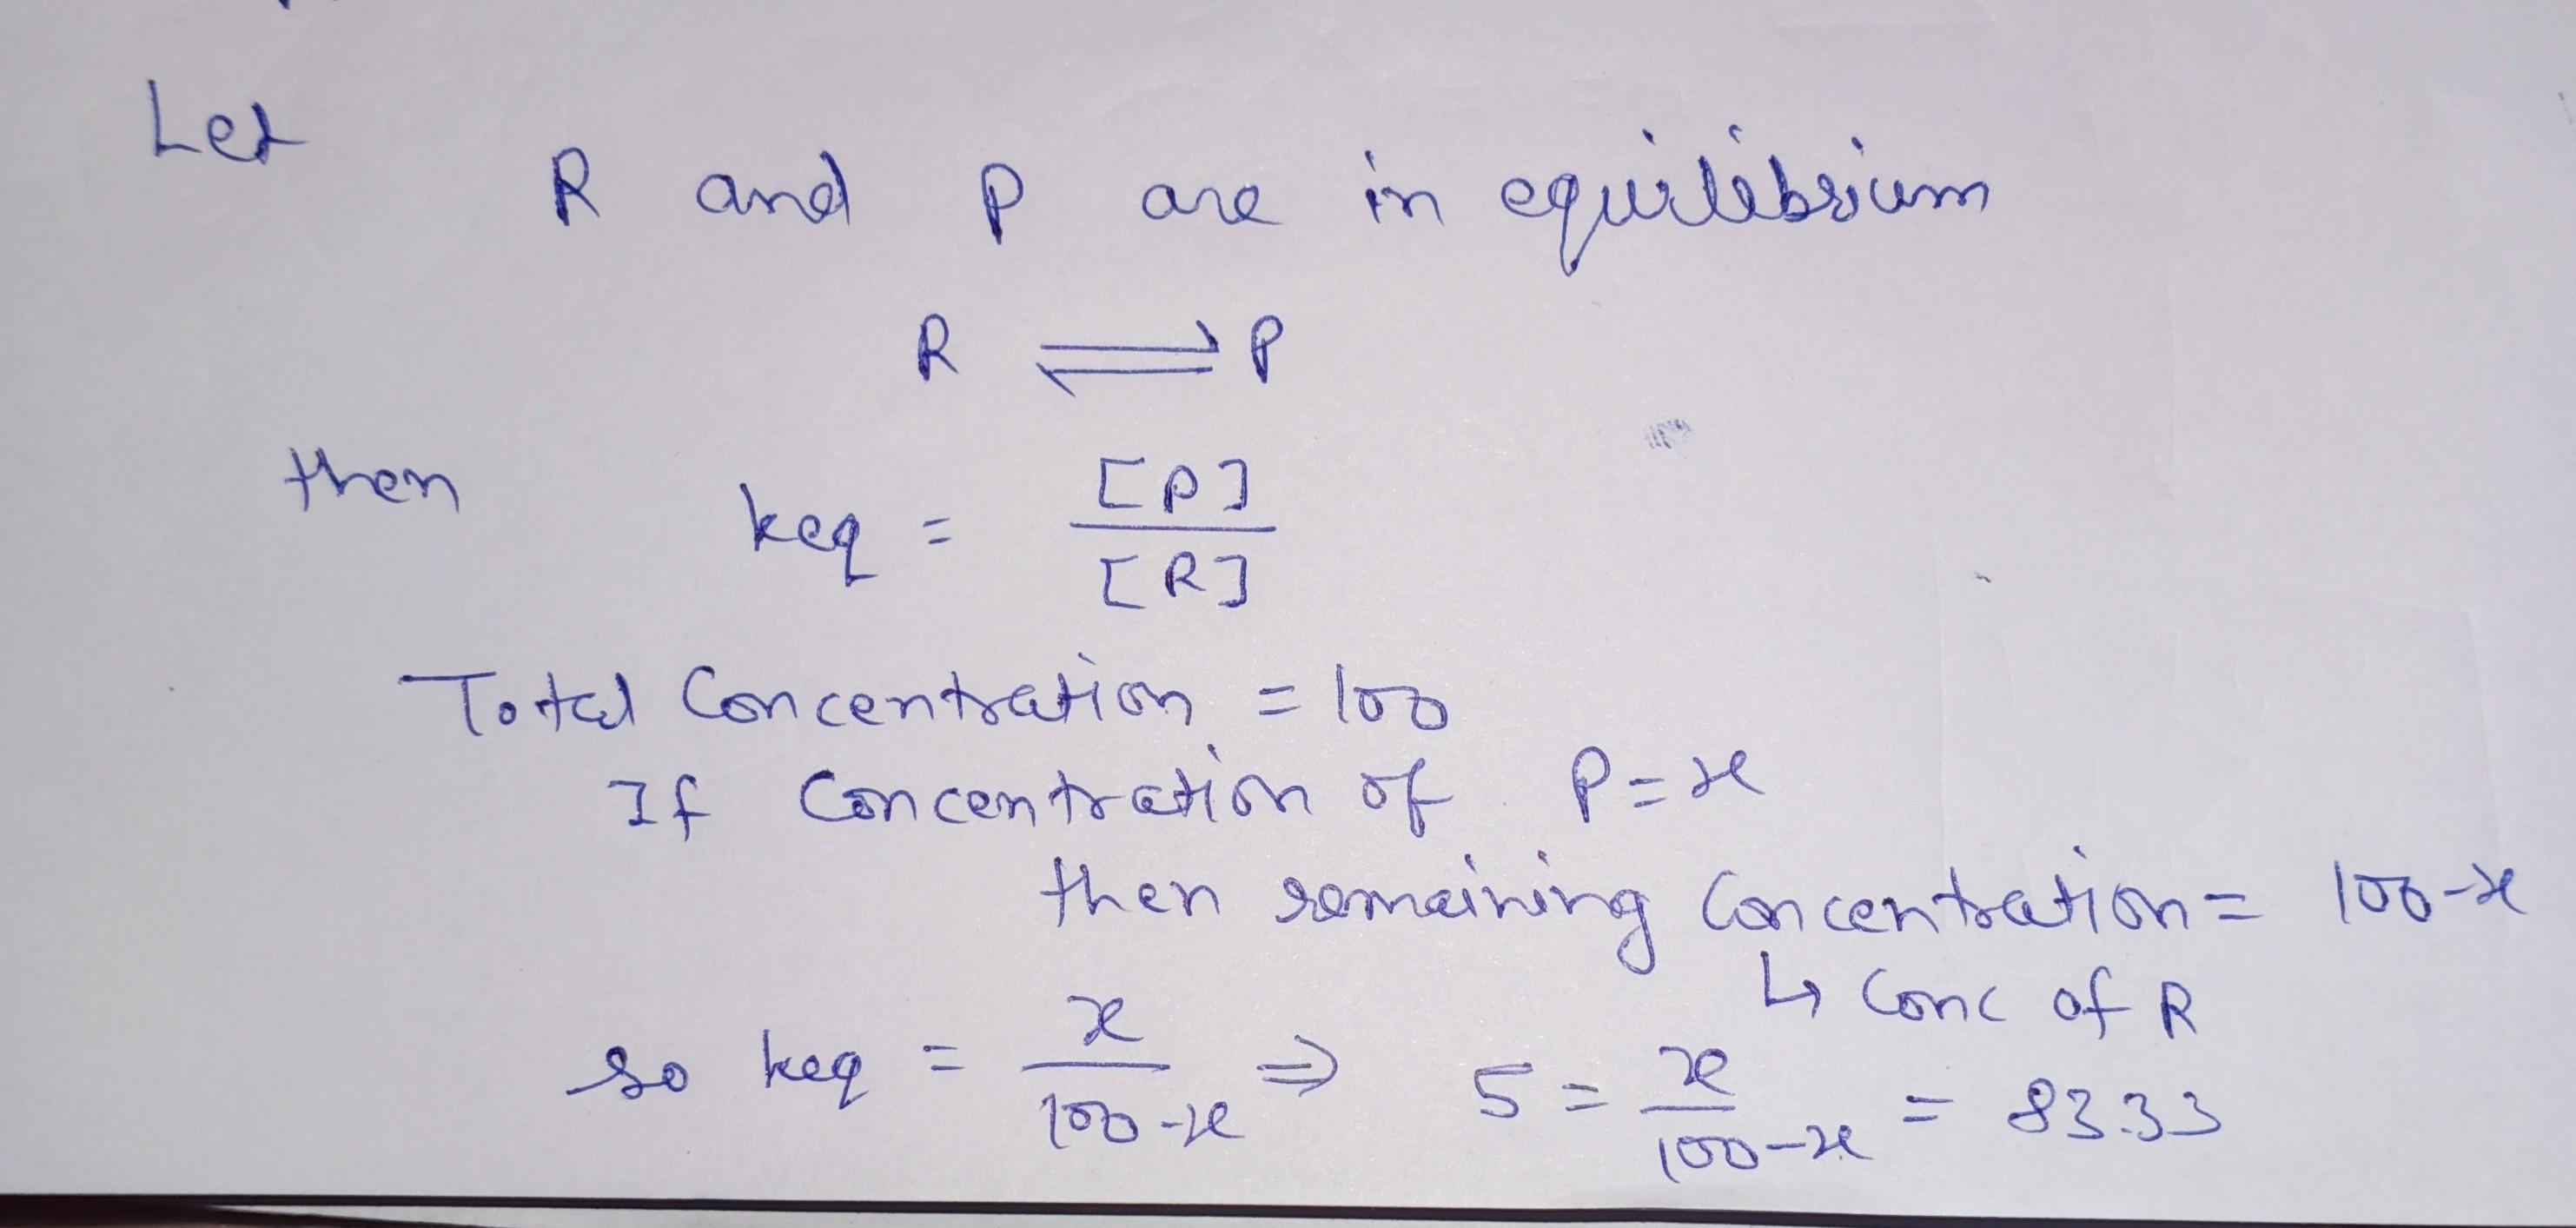 Let
R and P are in equilibrium
R ⇌ P
then keq = [P] / [R]
Total Concentration = 100
If Concentration of P = x
then remaining Concentration = 100-x
↳ Conc of R
so keq = x / 100-x ⇒ 5 = x / 100-x = 83.33